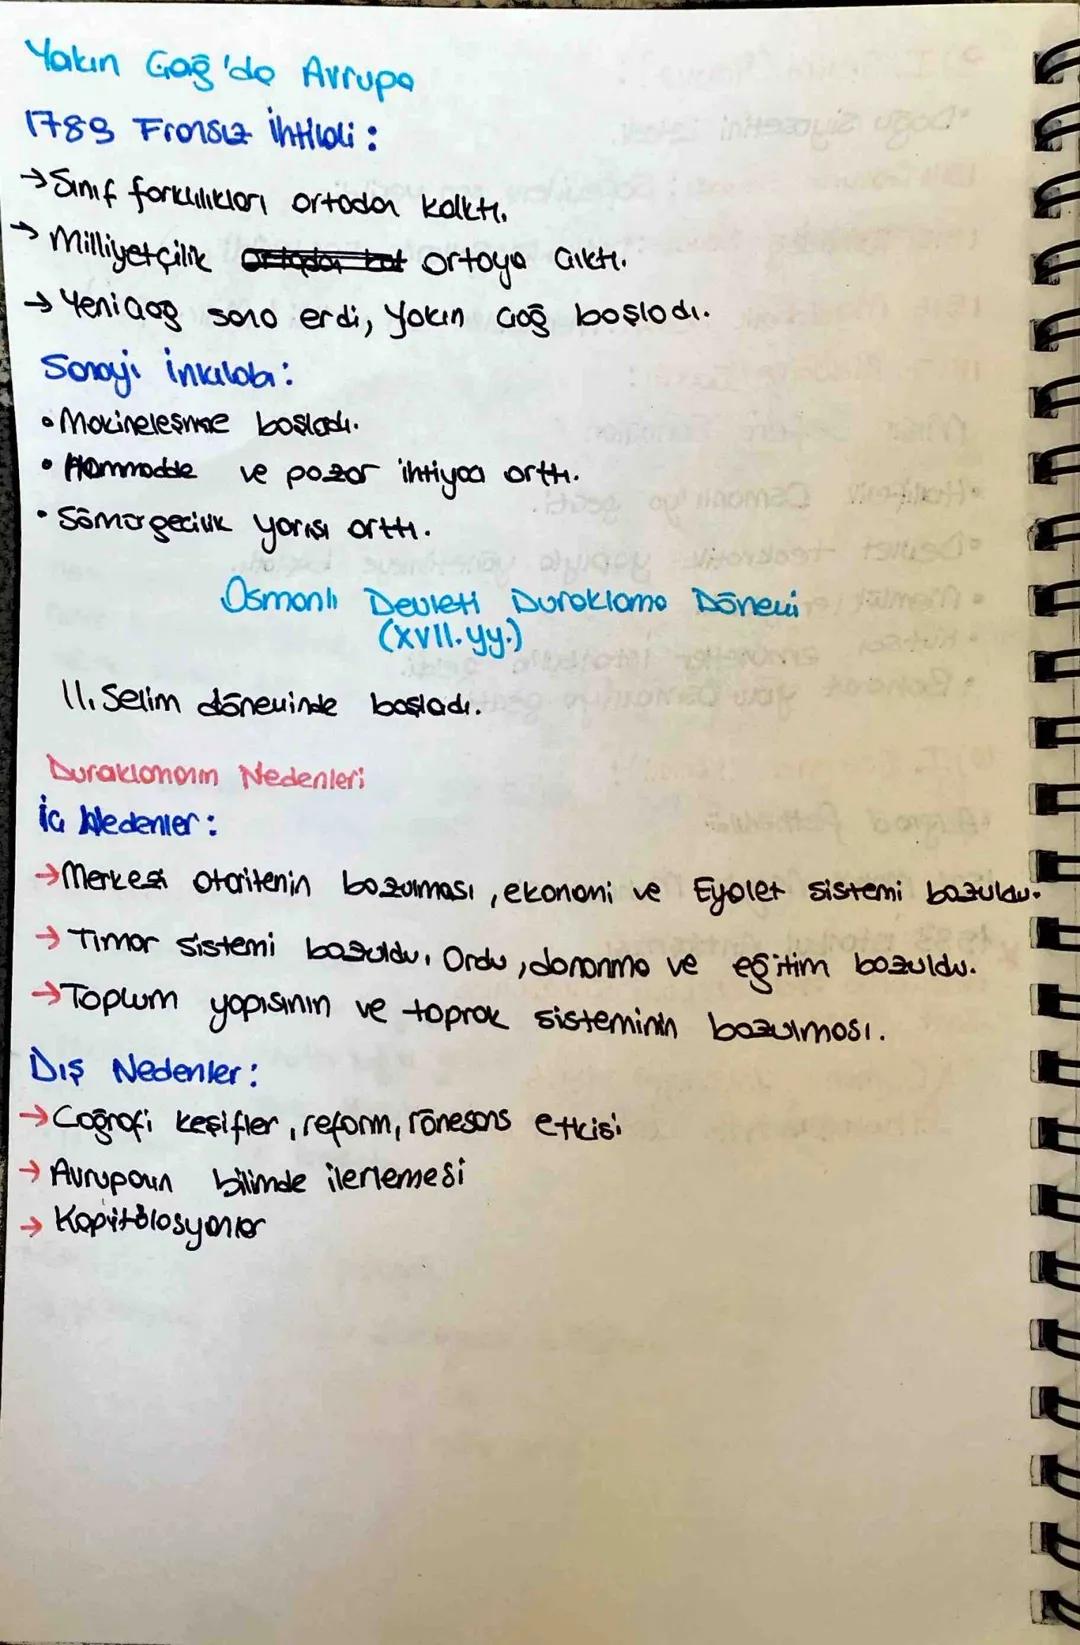 Yakın Çağ'da Avrupa
1789 Fransız İhtilali :
→ Sınıf farklılıkları ortadan kalktı.
→ Milliyetçilik ortaya çıktı.
→ Yeniçağ sona erdi, Yakın Çağ başladı.
Sanayi İnkılabı :
• Makineleşme başladı.
• Hammadde ve pazar ihtiyacı arttı.
• Sömürgecilik yarışı arttı.
Osmanlı Devleti Duraklama Dönemi
(XVII. yy.)
II. Selim döneminde başladı.
Duraklamanın Nedenleri
İç Nedenler :
→ Merkezi otoritenin bozulması, ekonomi ve Eyalet sistemi bozuldu.
→ Tımar sistemi bozuldu, Ordu, donanma ve eğitim bozuldu.
→ Toplum yapısının ve toprak sisteminin bozulması.
Dış Nedenler :
→ Coğrafi keşifler, reform, rönesans etkisi
→ Avrupanın bilimde ilerlemesi
→ Kapitülasyonlar